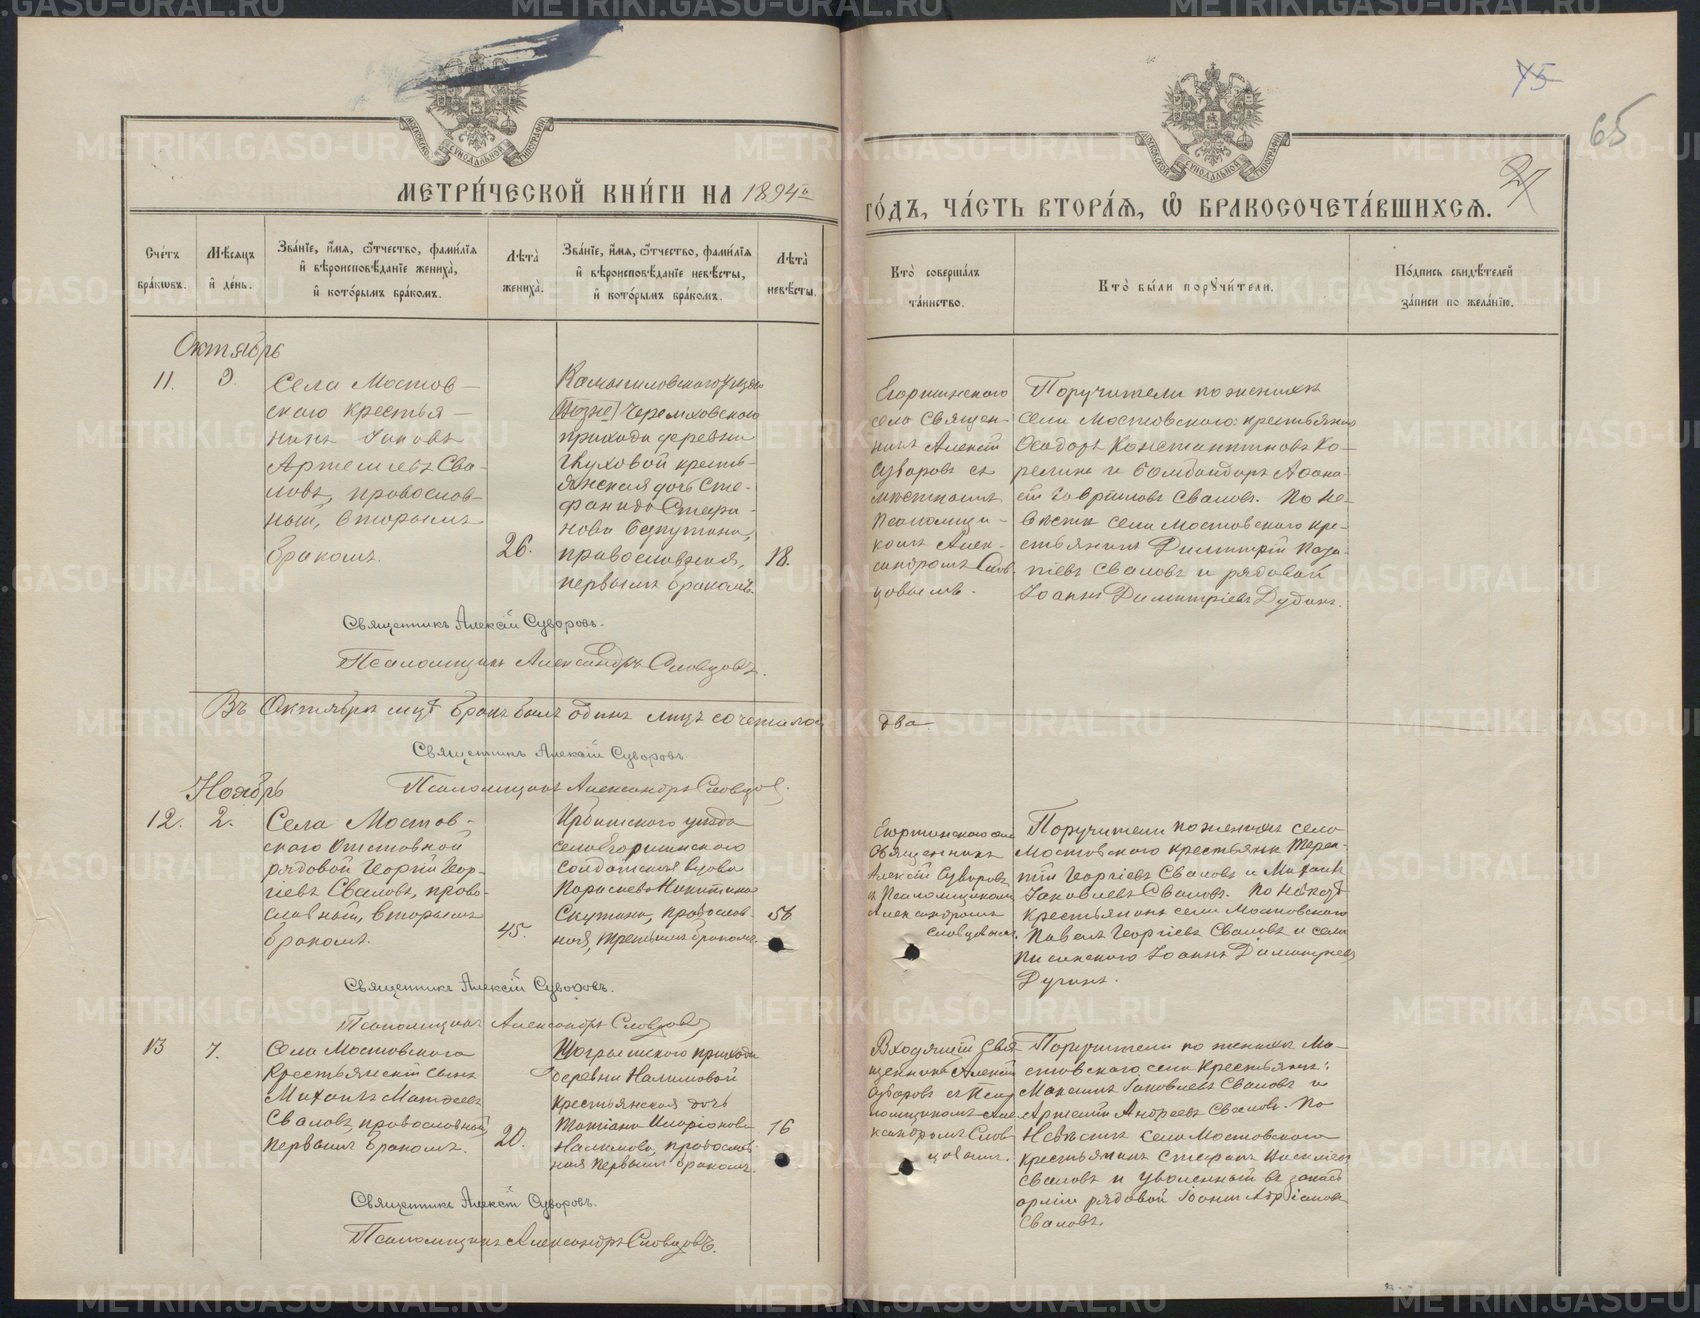 МЕТРИ́ЧЕСКОЙ КНИ́ГИ НА 1894й
ГО́ДЪ, ЧА́СТЬ ВТОРА́Я, Ѽ БРАКОСОЧЕТА́ВШИХСЯ.
75
65
27
Сче́тъ бра́кѡвъ.
Мѣ́сяцъ и҆ де́нь.
Зва́нїе, и҆́мя, ѻ҆́тчество, фами́лїя
и҆ вѣроисповѣ́данїе жениха̀,
и҆ кото́рымъ бра́комъ.
Лѣта̀ жениха̀.
Зва́нїе, и҆́мя, ѻ҆́тчество, фами́лїя
и҆ вѣроисповѣ́данїе невѣ́сты,
и҆ кото́рымъ бра́комъ.
Лѣта̀ невѣ́сты.
Кто̀ соверша́лъ
та́инство.
Кто̀ бы́ли порꙋчи́тели.
По́дпись свидѣ́телей
за́писи по жела́нїю.
Октябрь
11.
9.
Села Мостов-
скаго крестья-
нинъ Іаковъ
Артемьевъ Сва-
ловъ, православ-
ный, вторымъ
бракомъ.
26.
Камышловскаго уѣзда
Черемховскаго
прихода деревни
Глуховой кресть-
янская дочь Сте-
фанида
нова
православная,
первымъ бракомъ.
18.
Егоршинскаго
села Священ-
никъ Алексій
Суворовъ съ
мѣстнымъ
псаломщи-
комъ Алек-
сандромъ Слов-
цовымъ.
Поручители по женихѣ
села Мостовскаго крестьянинъ
Ѳеодоръ Константиновъ Ко-
релинъ и бомбандиръ Аѳана-
сій Гавріиловъ Сваловъ. По не-
вѣстѣ села Мостовскаго кре-
стьянинъ Димитрій
Сваловъ и рядовой
Іоаннъ Димитріевъ Дудинъ.
Священникъ Алексій Суворовъ.
Псаломщикъ Александръ Словцовъ.
Въ Октябрѣ мцѣ бракъ былъ одинъ лицъ сочеталось
два
Священникъ Алексій Суворовъ.
Псаломщикъ Александръ Словцов.
Ноябрь
12.
2.
Села Мостов-
скаго отставной
рядовой Георгій Геор-
гіевъ Сваловъ, право-
славный, вторымъ
бракомъ.
45.
Ирбитскаго уѣзда
села Егоршинскаго
солдатская вдова
Параскева Никитина
Скутина, православ-
ная, третьимъ бракомъ.
56
Егоршинскаго села
Священникъ
Алексій Суворовъ
съ Псаломщикомъ
Александромъ
Словцовымъ.
Поручители по женихѣ села
Мостовскаго крестьяне Терен-
тій Георгіевъ Сваловъ и Михаилъ
Іаковлевъ Сваловъ. По невѣстѣ
крестьянинъ села Мостовскаго
Павелъ Георгіевъ Сваловъ и села
Писанскаго Іоаннъ Димитріевъ
Дугинъ.
Священникъ Алексій Суворовъ.
Псаломщикъ Александръ Словцовъ
13
7.
Села Мостовскаго
крестьянскій сынъ
Михаилъ Матѳеевъ
Сваловъ, православный,
первымъ бракомъ.
20.
Шогринскаго прихода
деревни Налимовой
крестьянская дочь
Татіана Иларіонова
Налимова, православ-
ная первымъ бракомъ.
16
Входящій Свя-
щенникъ Алексій
Суворовъ съ Пса-
ломщикомъ Але-
ксандромъ Слов-
цовымъ.
Поручители по женихѣ Мо-
стовскаго села крестьяне:
Максимъ Іаковлевъ Сваловъ и
Артемій Андреевъ Сваловъ. По
Невѣстѣ села Мостовскаго
крестьянинъ Стефанъ
Сваловъ и уволенный въ запасъ
арміи рядовой Іоаннъ Адріановъ
Сваловъ.
Священникъ Алексій Суворовъ.
Псаломщикъ Александръ Словцовъ.
METRIKI.GASO-URAL.RU